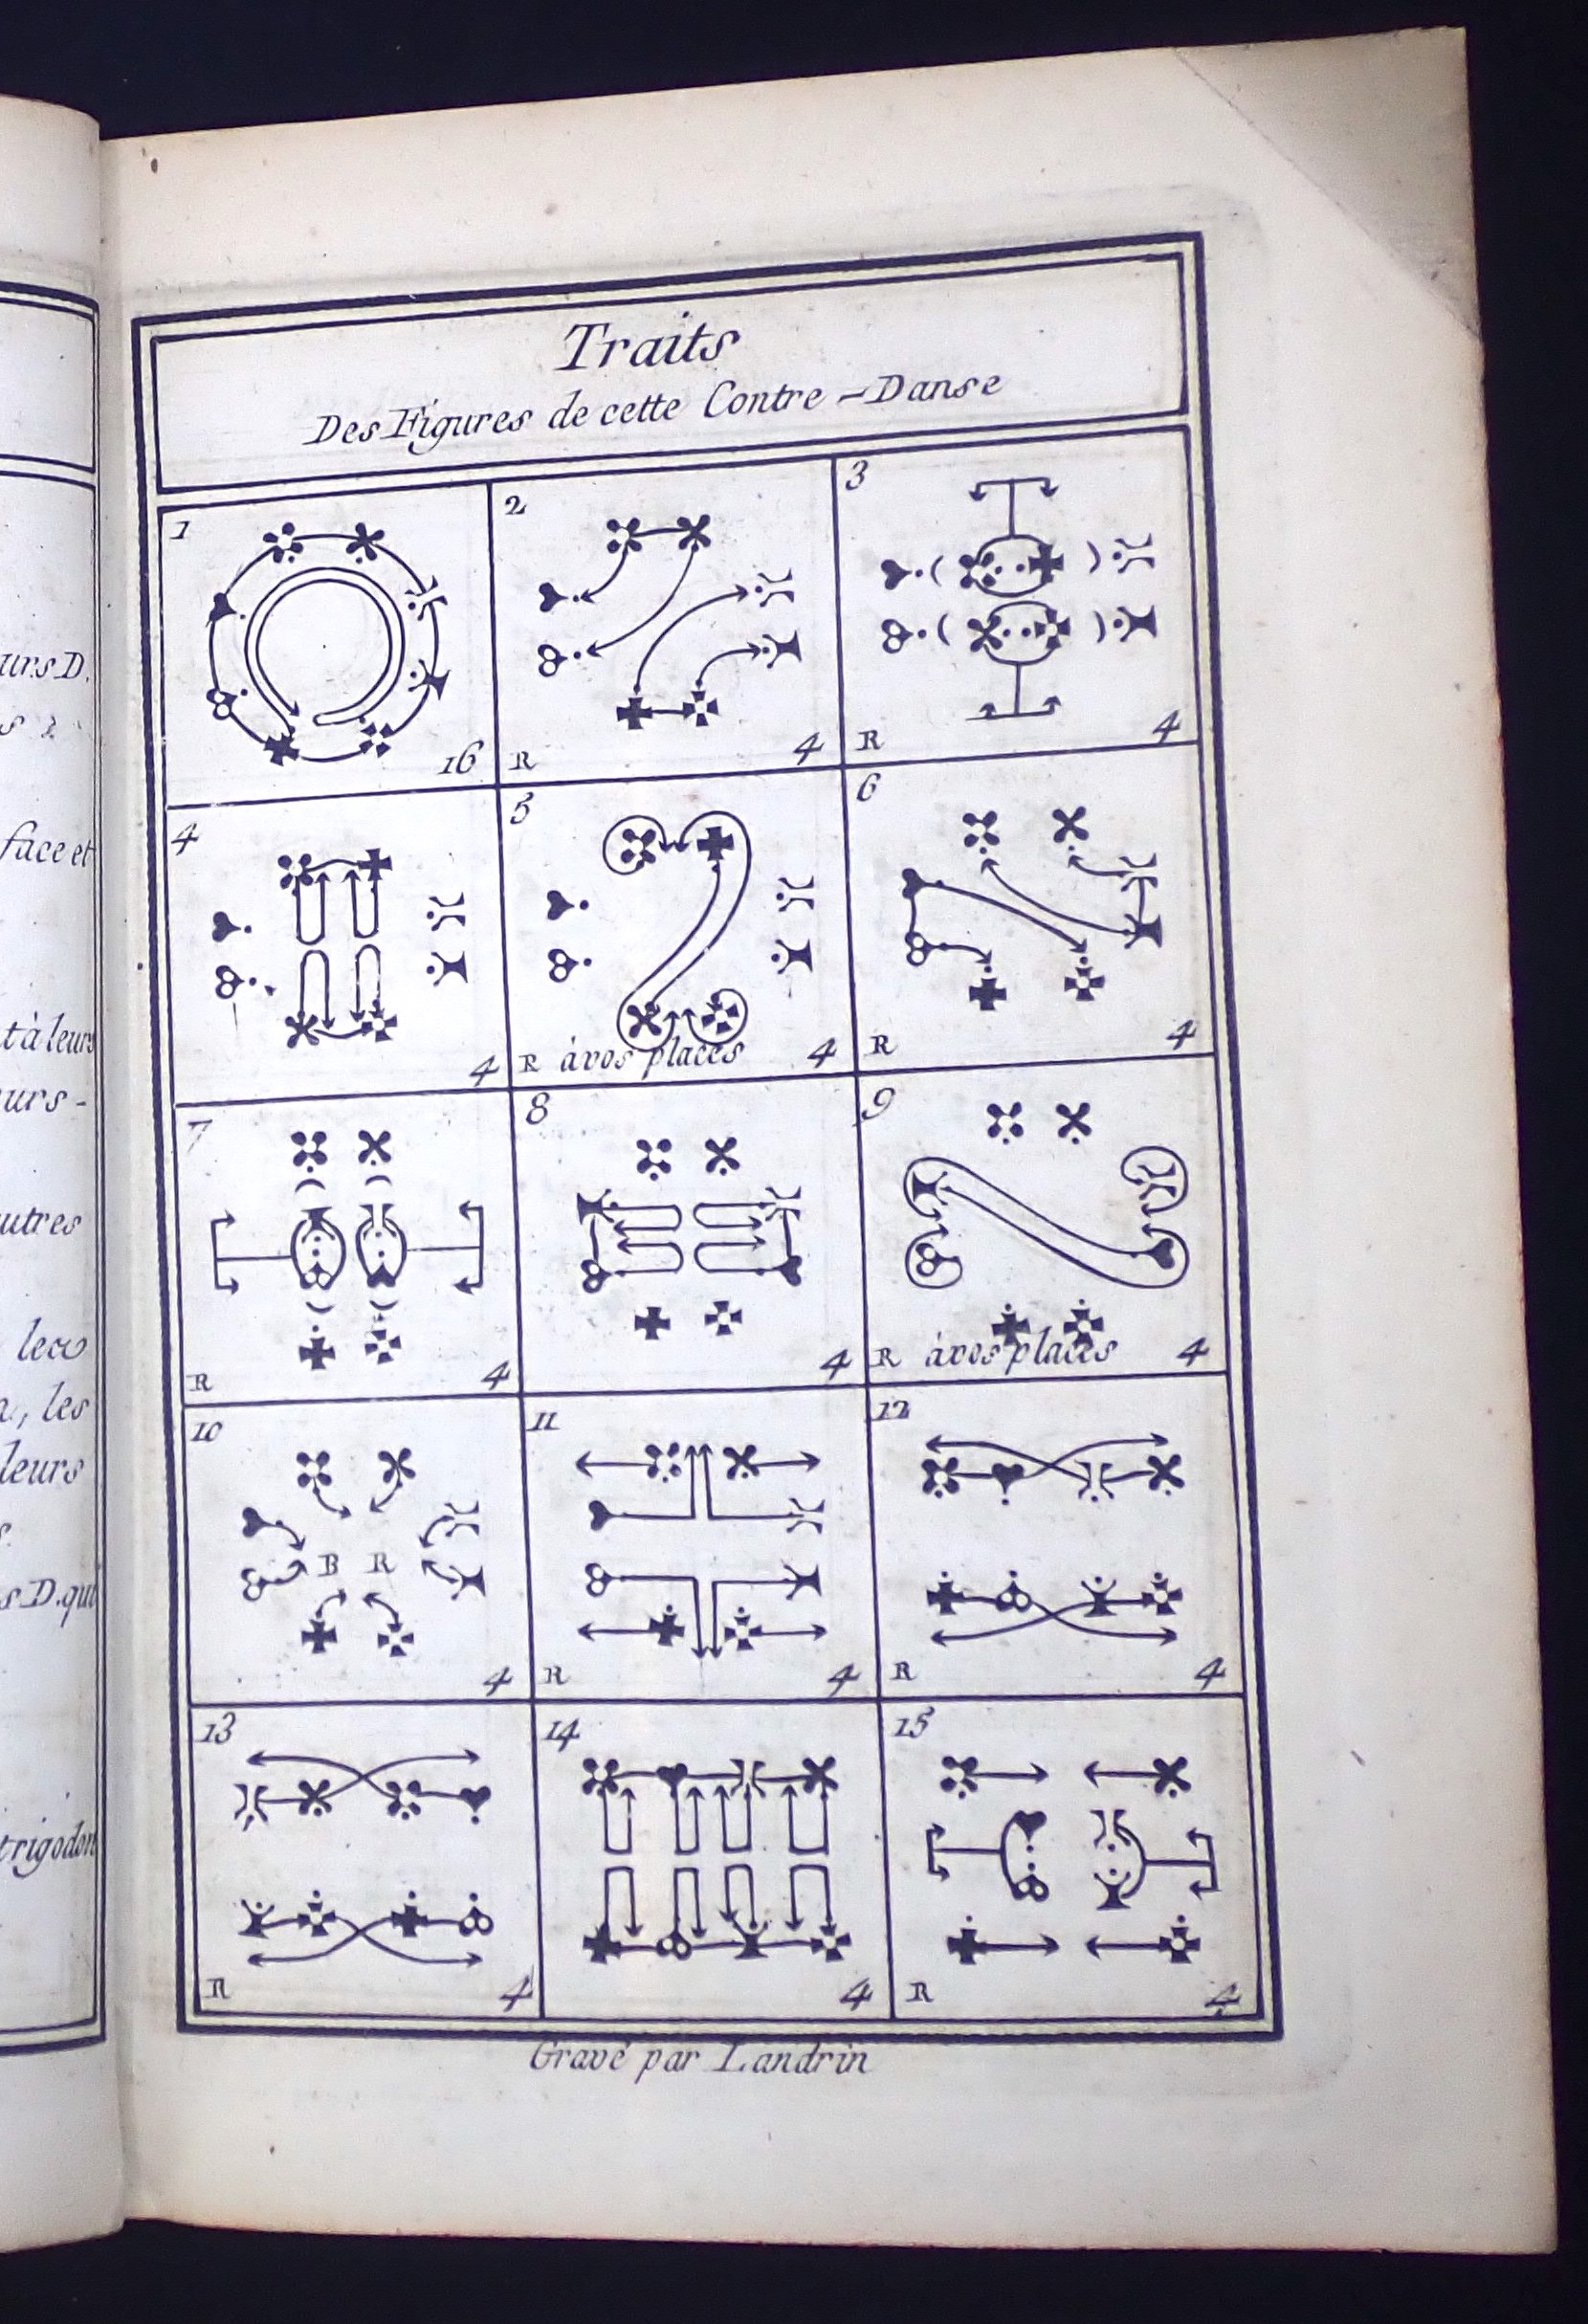 urs D.
face et
t à leurs
urs -
utres
les
leurs
s D. qui
trigodon
Traits
Des Figures de cette Contre-Danse
1
16
2
R 4
3
R 4
4
4
5
R àvos places 4
6
R 4
7
R 4
8
4
9
R àvos places 4
10
B R
4
11
R 4
12
R 4
13
R 4
14
4
15
R 4
Gravé par Landrin